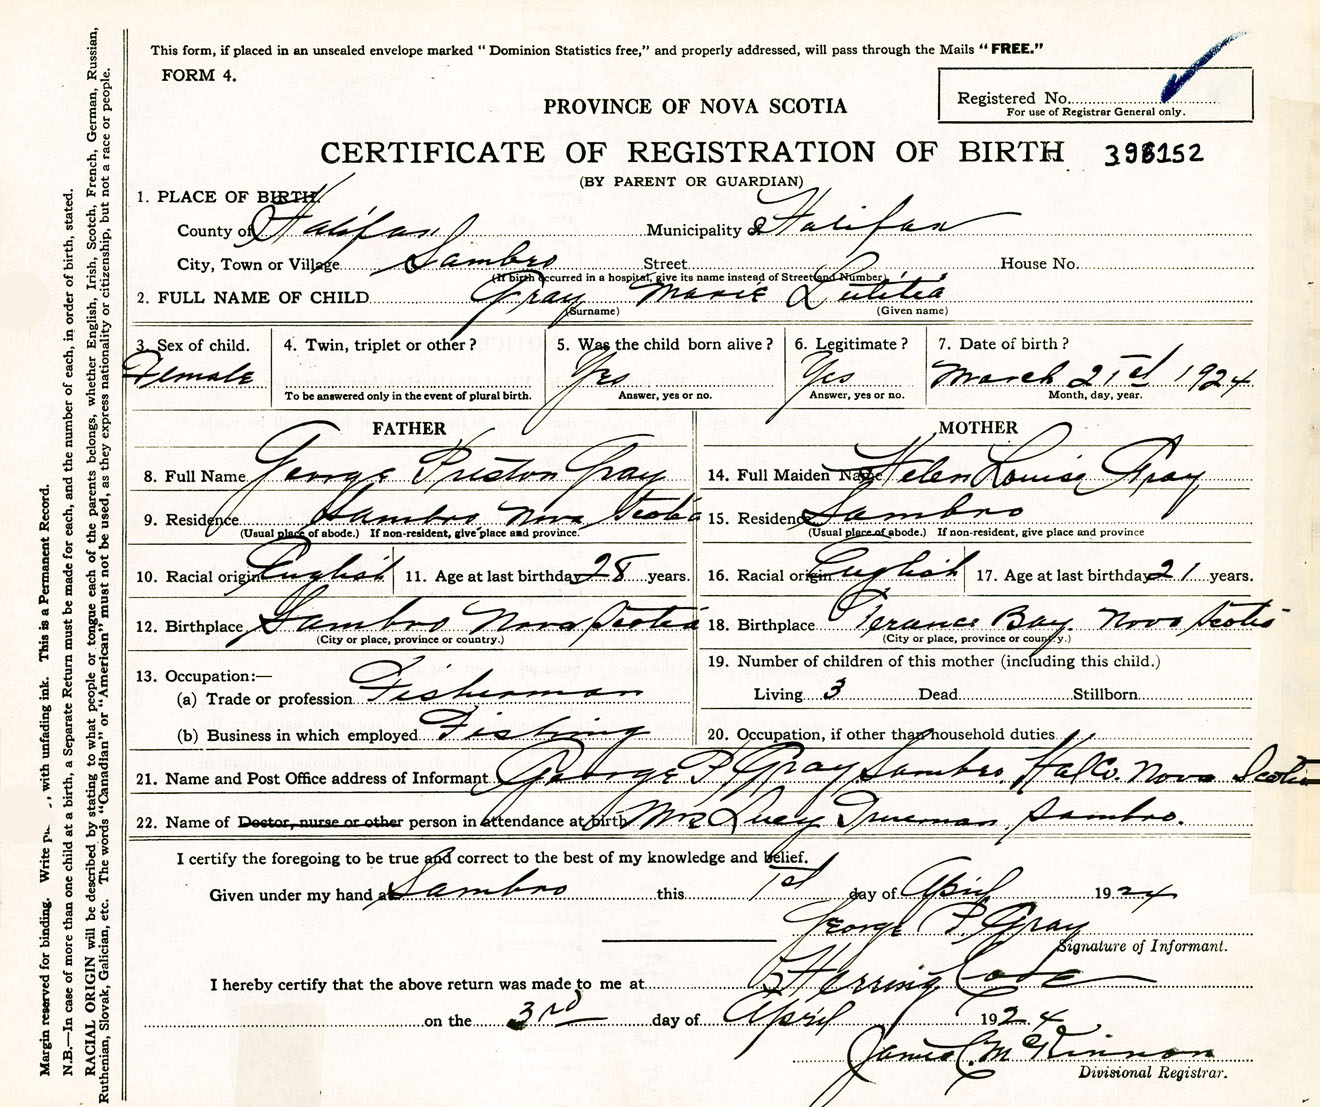 This form, if placed in an unsealed envelope marked “ Dominion Statistics free,” and properly addressed, will pass through the Mails “ FREE.”
FORM 4.
Registered No.
For use of Registrar General only.
PROVINCE OF NOVA SCOTIA
CERTIFICATE OF REGISTRATION OF BIRTH 398152
(BY PARENT OR GUARDIAN)
1. PLACE OF BIRTH.
County of Halifax Municipality of Halifax
City, Town or Village Sambro Street House No.
(If birth occurred in a hospital, give its name instead of Street and Number)
2. FULL NAME OF CHILD Gray Marie Lutitia
(Surname) (Given name)
3. Sex of child. 4. Twin, triplet or other? 5. Was the child born alive? 6. Legitimate? 7. Date of birth?
Female Yes Yes March 21st 1924
To be answered only in the event of plural birth. Answer, yes or no. Answer, yes or no. Month, day, year.
FATHER MOTHER
8. Full Name George Priston Gray 14. Full Maiden Name Helen Louise Gray
9. Residence Sambro Nova Scotia 15. Residence Sambro
(Usual place of abode.) If non-resident, give place and province. (Usual place of abode.) If non-resident, give place and province
10. Racial origin English 11. Age at last birthday 28 years. 16. Racial origin English 17. Age at last birthday 21 years.
12. Birthplace Sambro Nova Scotia 18. Birthplace Terance Bay Nova Scotia
(City or place, province or country.) (City or place, province or country.)
13. Occupation:— 19. Number of children of this mother (including this child.)
(a) Trade or profession Fisherman Living 3 Dead Stillborn
(b) Business in which employed Fishing 20. Occupation, if other than household duties
21. Name and Post Office address of Informant George P. Gray Sambro. Hal Co. Nova Scotia
22. Name of Doctor, nurse or other person in attendance at birth Mrs Lucy Trueman, Sambro.
I certify the foregoing to be true and correct to the best of my knowledge and belief.
Given under my hand at Sambro this 1st day of April 1924
George P. Gray
Signature of Informant.
I hereby certify that the above return was made to me at Herring Cove
on the 3rd day of April 1924
James C. McKinnon
Divisional Registrar.
Margin reserved for binding. Write with unfading ink. This is a Permanent Record.
N.B.—In case of more than one child at a birth, a Separate Return must be made for each, and the number of each, in order of birth, stated.
RACIAL ORIGIN will be described by stating to what people or tongue each of the parents belongs, whether English, Irish, Scotch, French, German, Russian,
Ruthenian, Slovak, Galician, etc. The words “Canadian” or “American” must not be used, as they express nationality or citizenship, but not a race or people.